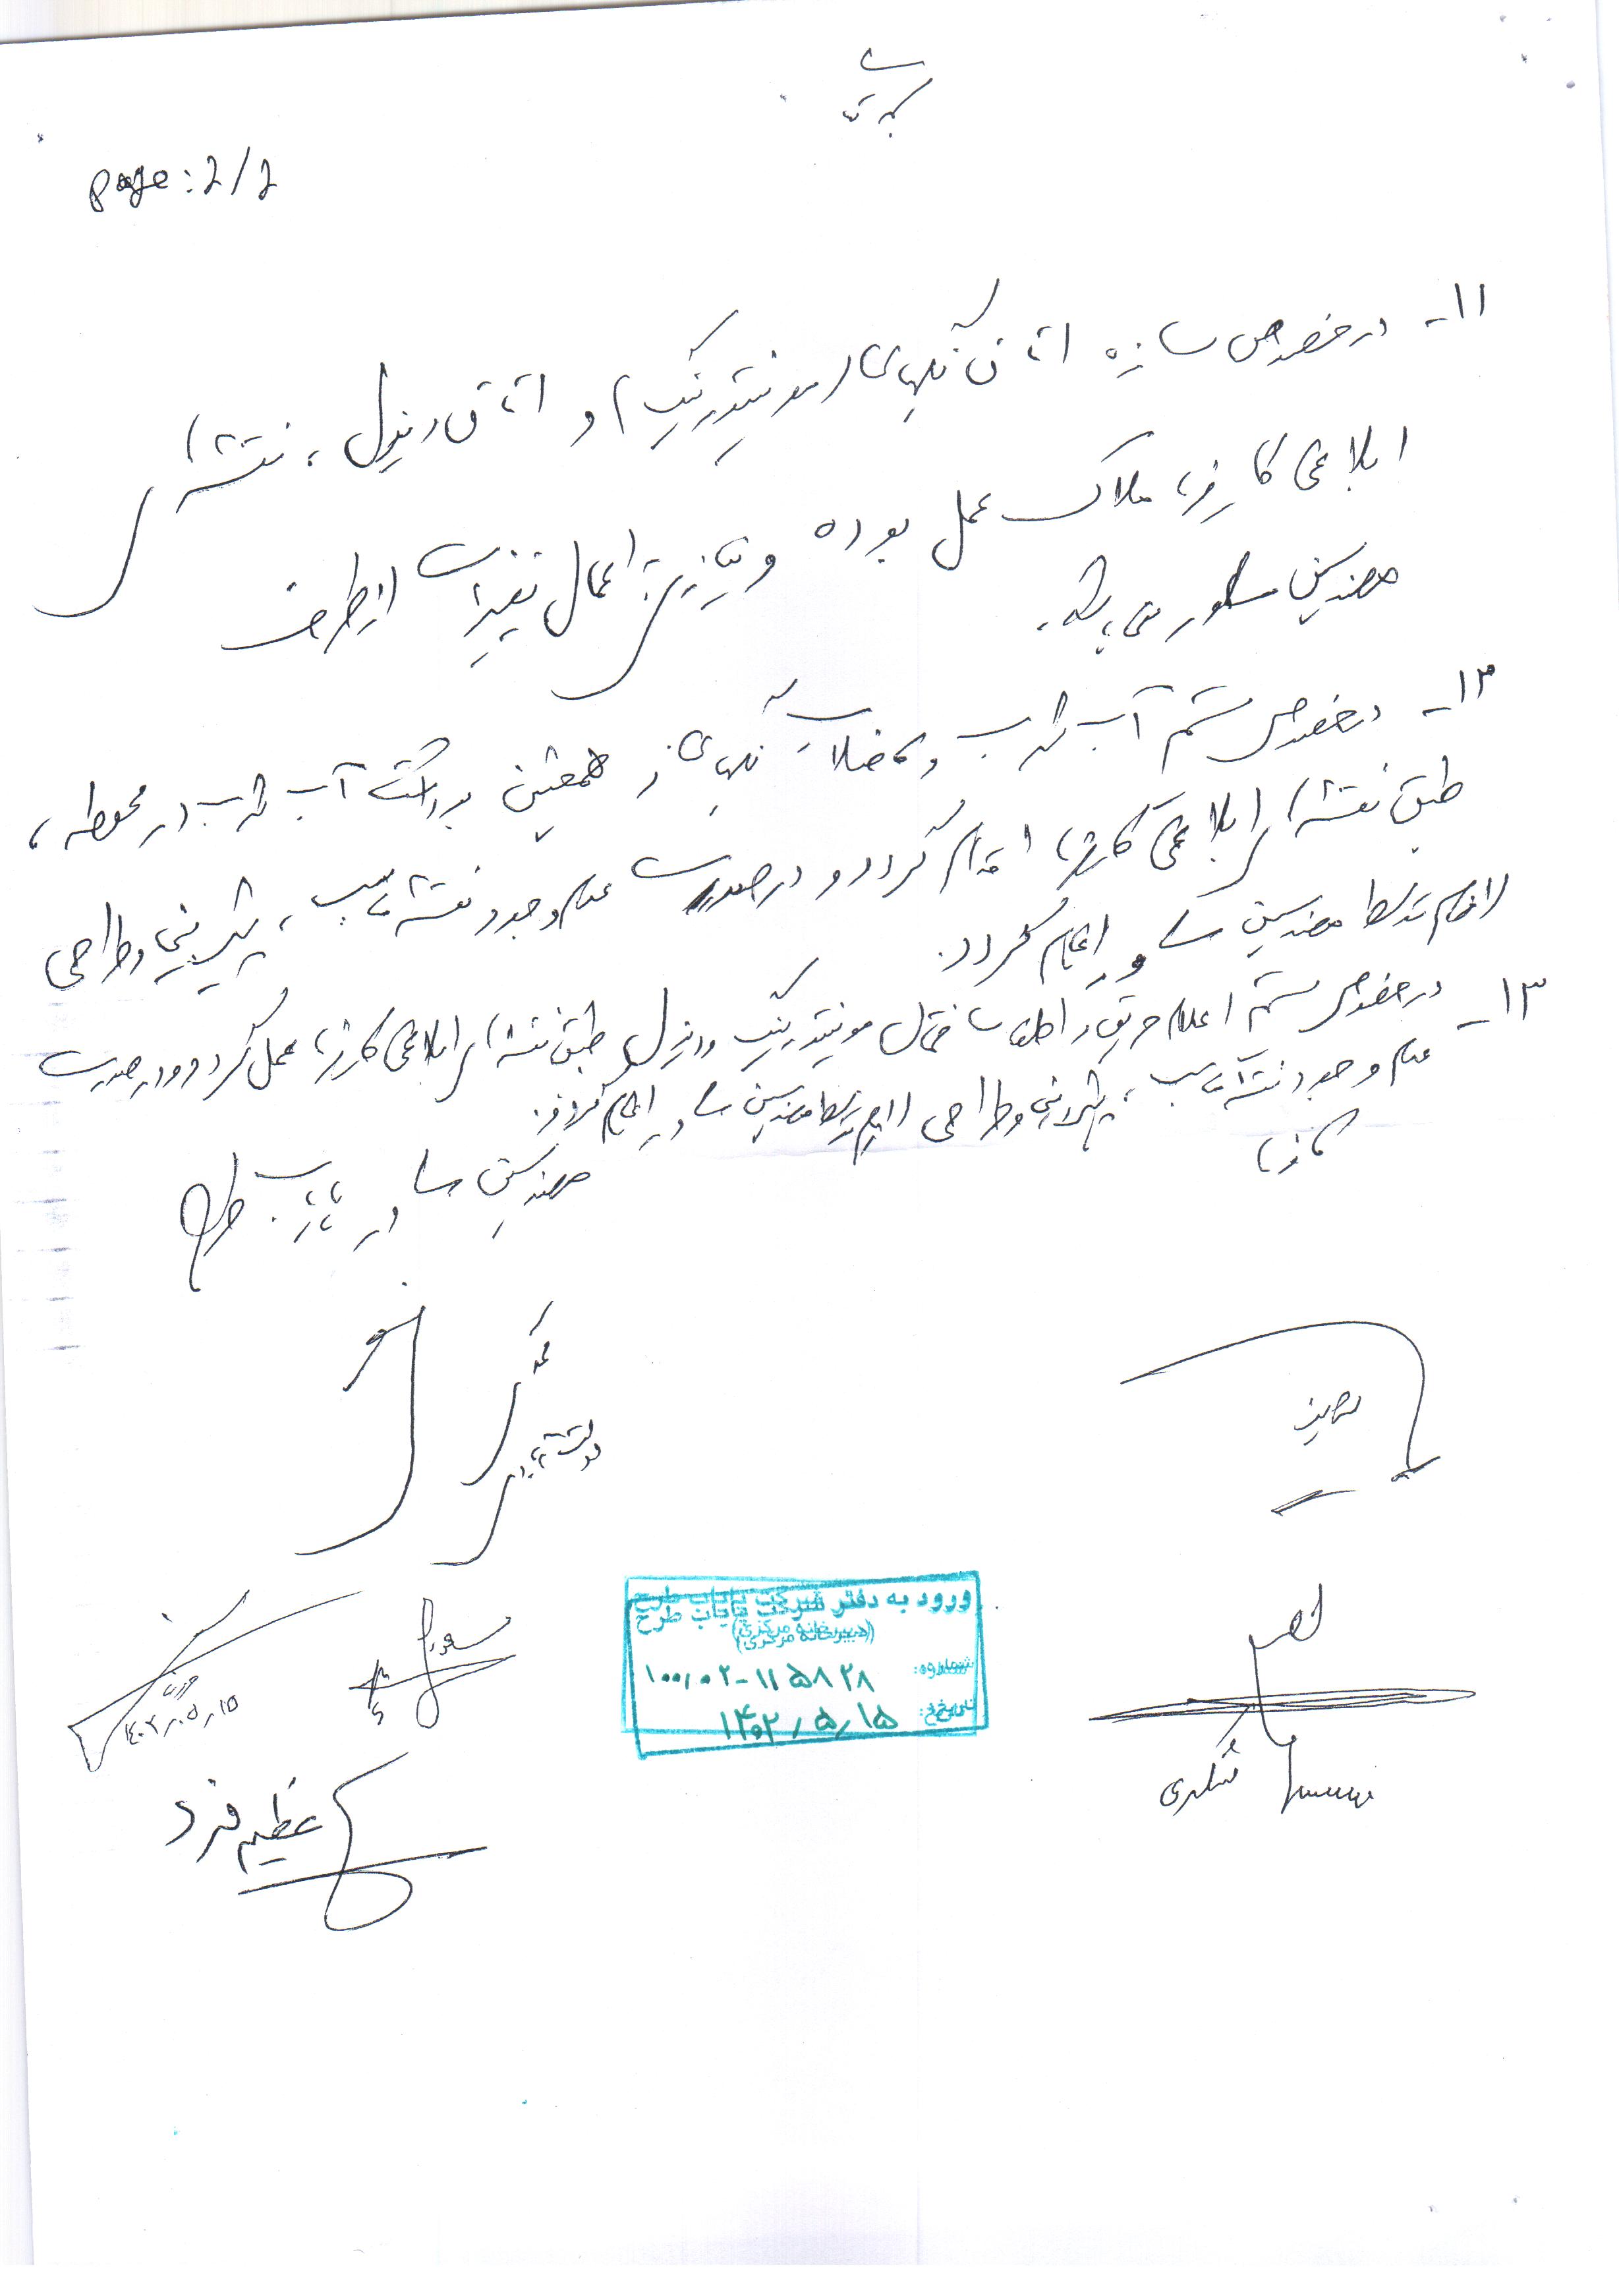 page: 2/2
۱۱- در خصوص سازه اتاق آنالایزر (مونیتورینگ) و اتاق دیزل، نقشه های
ابلاغی کارفرما ملاک عمل بوده و نیازی به اعمال تغییرات از طرف
مهندسین مشاور می باشد.
۱۲- در خصوص سیستم آب شرب و فاضلاب و همچنین برداشت آب شرب در محوطه،
طبق نقشه های ابلاغی کارفرما اقدام گردد و در صورت عدم وجود نقشه مناسب، پیش بینی و طراحی
لازم توسط مهندسین مشاور انجام گردد.
۱۳- در خصوص سیستم اعلام حریق و اطفاء ساختمان مونیتورینگ و دیزل طبق نقشه های ابلاغی کارفرما عمل گردد و در صورت
عدم وجود نقشه مناسب، پیش بینی و طراحی لازم توسط مهندسین مشاور انجام گردد.
کارفرما
مهندسین مشاور پایاب طرح
محمد
۱۴۰۲/۰۵/۱۵
ورود به دفتر شرکت پایاب طرح
(دبیرخانه مرکزی)
شماره: ۱۰۰/۰۲-۱۱۵۸۲۸
تاریخ: ۱۴۰۲/۵/۱۵
عظیم فرد